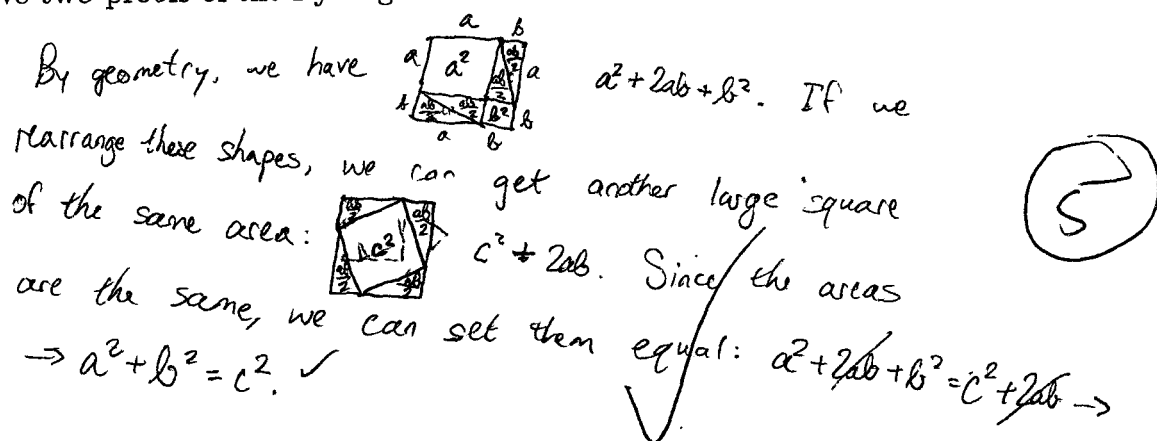 By geometry, we have a b a a² ab/2 a ab/2 b ab/2 ab/2 b² b a b a² + 2ab + b². If we
rearrange these shapes, we can get another large square
of the same area: ab/2 ab/2 c² ab/2 ab/2 c² + 2ab. Since the areas
are the same, we can set them equal: a² + 2ab + b² = c² + 2ab →
→ a² + b² = c². ✓
5